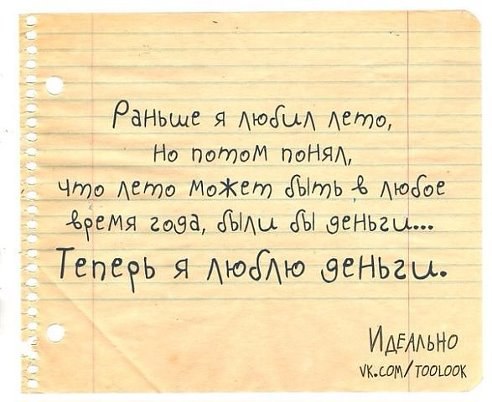 Раньше я любил лето,
но потом понял,
что лето может быть в любое
время года, были бы деньги...
Теперь я люблю деньги.
Идеально
vk.com/toolook